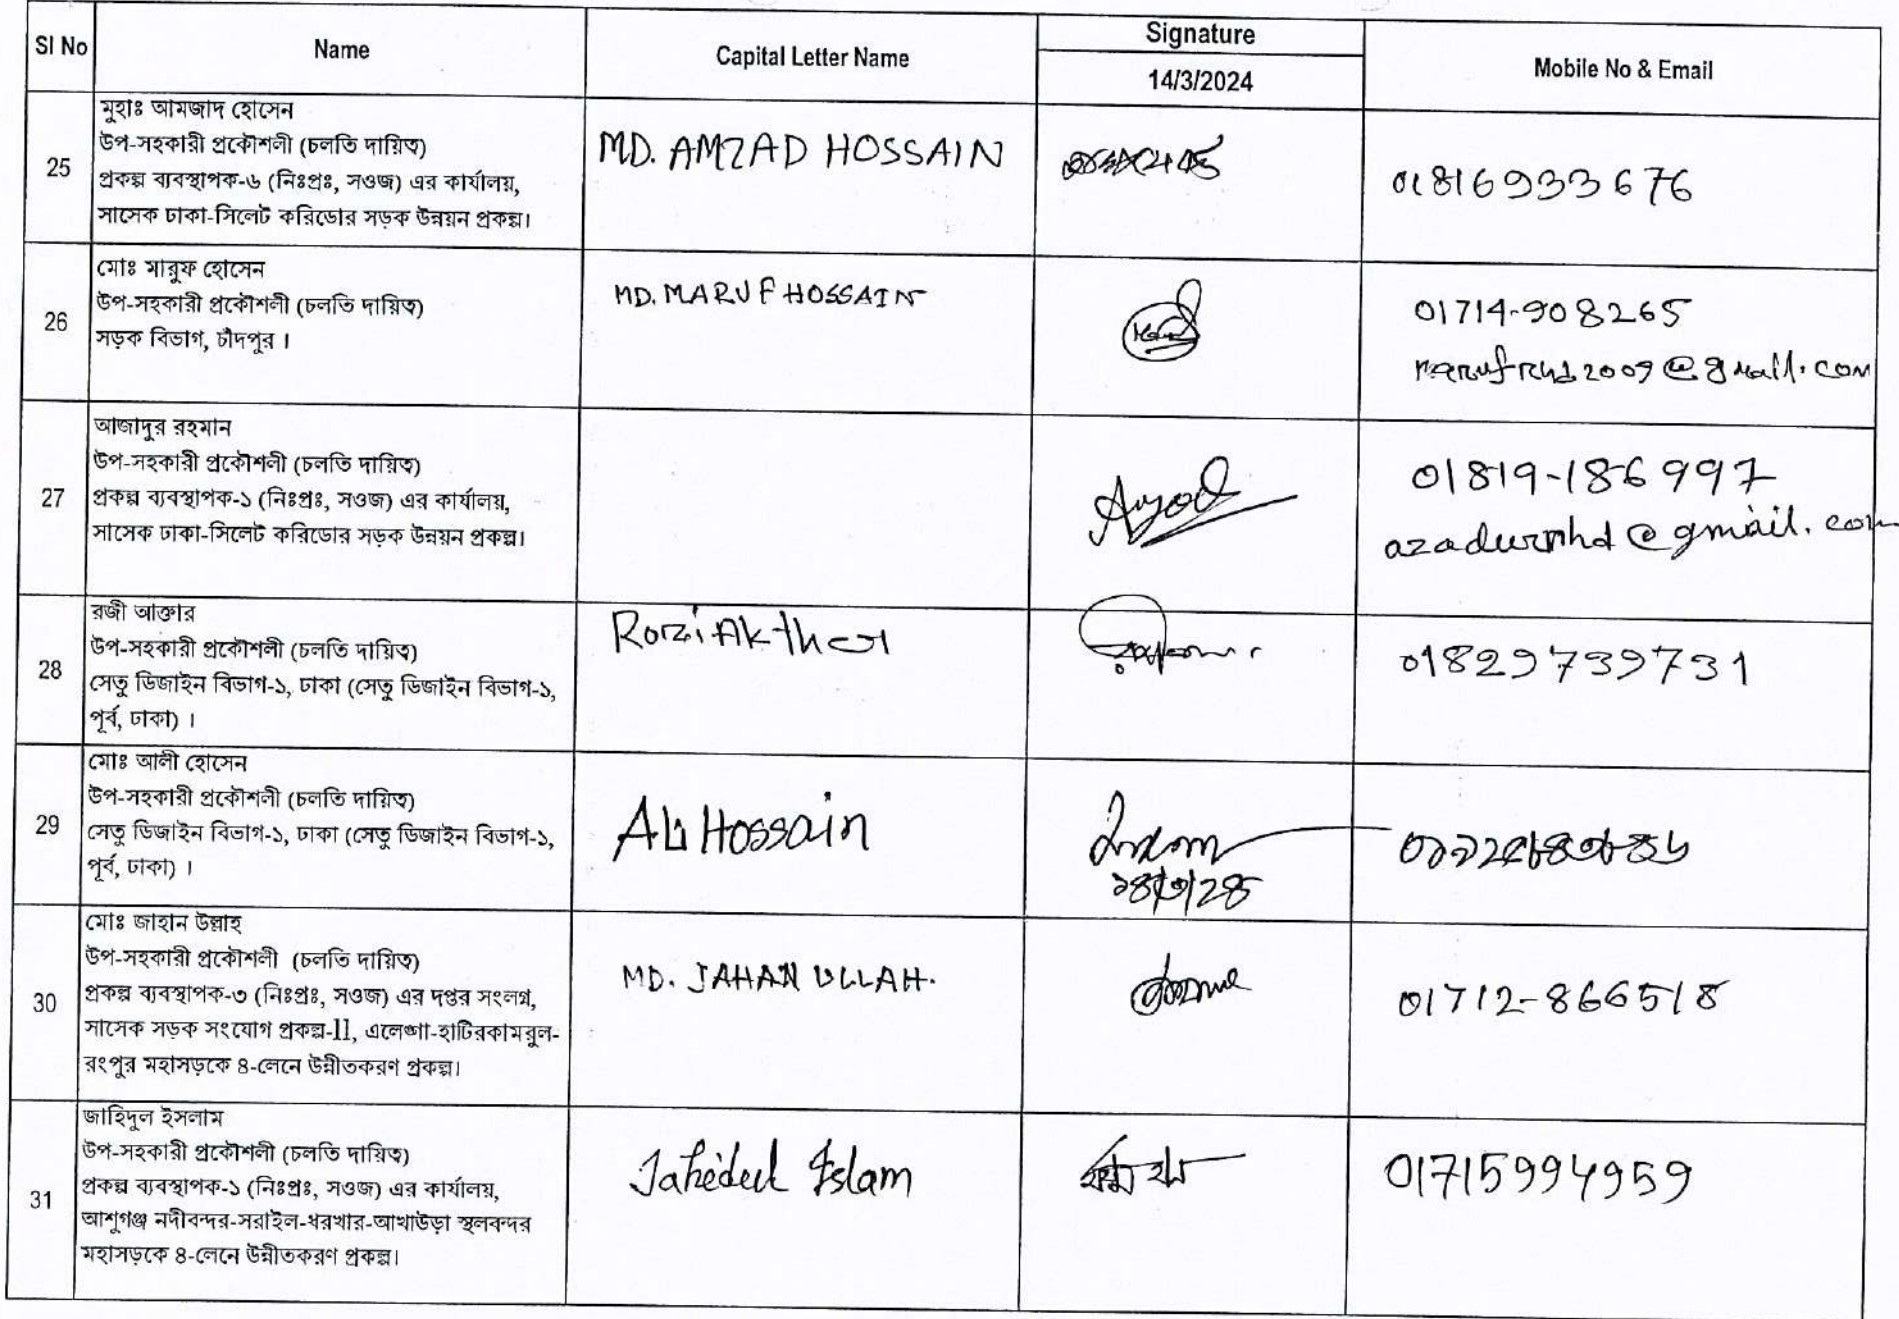 Sl No
Name
Capital Letter Name
Signature
14/3/2024
Mobile No & Email
25
মুহাঃ আমজাদ হোসেন
উপ-সহকারী প্রকৌশলী (চলতি দায়িত্ব)
প্রকল্প ব্যবস্থাপক-৬ (নিঃপ্রঃ, সওজ) এর কার্যালয়,
সাসেক ঢাকা-সিলেট করিডোর সড়ক উন্নয়ন প্রকল্প।
MD. AMZAD HOSSAIN
01816933676
26
মোঃ মারুফ হোসেন
উপ-সহকারী প্রকৌশলী (চলতি দায়িত্ব)
সড়ক বিভাগ, চাঁদপুর ।
MD. MARUF HOSSAIN
01714-908265
marufrhd2009@gmail.com
27
আজাদুর রহমান
উপ-সহকারী প্রকৌশলী (চলতি দায়িত্ব)
প্রকল্প ব্যবস্থাপক-১ (নিঃপ্রঃ, সওজ) এর কার্যালয়,
সাসেক ঢাকা-সিলেট করিডোর সড়ক উন্নয়ন প্রকল্প।
01819-186997
28
রজী আক্তার
উপ-সহকারী প্রকৌশলী (চলতি দায়িত্ব)
সেতু ডিজাইন বিভাগ-১, ঢাকা (সেতু ডিজাইন বিভাগ-১,
পূর্ব, ঢাকা) ।
Rozi Akther
01829739731
29
মোঃ আলী হোসেন
উপ-সহকারী প্রকৌশলী (চলতি দায়িত্ব)
সেতু ডিজাইন বিভাগ-১, ঢাকা (সেতু ডিজাইন বিভাগ-১,
পূর্ব, ঢাকা) ।
Ali Hossain
30
মোঃ জাহান উল্লাহ
উপ-সহকারী প্রকৌশলী (চলতি দায়িত্ব)
প্রকল্প ব্যবস্থাপক-৩ (নিঃপ্রঃ, সওজ) এর দপ্তর সংলগ্ন,
সাসেক সড়ক সংযোগ প্রকল্প-II, এলেঙ্গা-হাটিরকামরুল-
রংপুর মহাসড়কে ৪-লেনে উন্নীতকরণ প্রকল্প।
MD. JAHAN ULLAH.
01712-866518
31
জাহিদুল ইসলাম
উপ-সহকারী প্রকৌশলী (চলতি দায়িত্ব)
প্রকল্প ব্যবস্থাপক-১ (নিঃপ্রঃ, সওজ) এর কার্যালয়,
আশুগঞ্জ নদীবন্দর-সরাইল-ধরখার-আখাউড়া স্থলবন্দর
মহাসড়কে ৪-লেনে উন্নীতকরণ প্রকল্প।
Jahedul Islam
01715994959